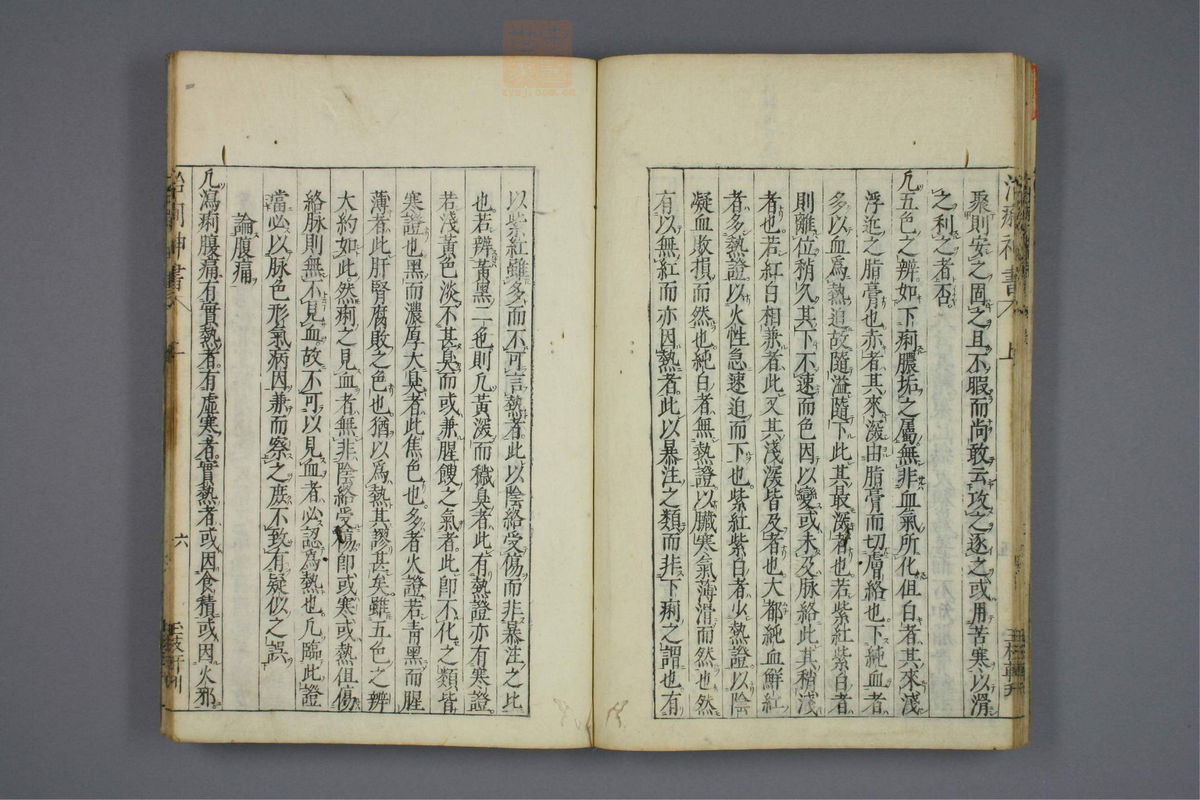 聚則安之固之且不暇而尚敢云攻之逐之或用苦寒以滑
之利之者否
凡五色之辨如下痢膿垢之屬無非血氣所化但白者其來淺
浮近之脂膏也赤者其來深由脂膏而切膚絡也下純血者
多以血爲熱迫故隨溢隨下此其最深者也若紫紅紫白者
則離位稍久其下不速而色因以變或未及脉絡此其稍淺
者也若紅白相兼者此又其淺深皆及者也大都純血鮮紅
者多熱證以火性急速迫而下也紫紅紫白者少熱證以陰
凝血敗損而然也純白者無熱證以臟寒氣薄滑而然也然
有以無紅而亦因熱者此以暴注之類而非下痢之謂也有
以紫紅雖多而不可言熱者此以陰絡受傷而非暴注之比
也若辨黃黑二色則凡黃深而穢臭者此有熱證亦有寒證
若淺黃色淡不甚臭而或兼腥餿之氣者此卽不化之類皆
寒證也黑而濃厚大臭者此焦色也多者火證若青黑而腥
薄者此肝腎腐敗之色也猶以爲熱其謬甚矣雖五色之辨
大約如此然痢之見血者無非陰絡受傷卽或寒或熱但傷
絡脉則無不見血故不可以見血者必認爲熱也凡臨此證
當必以脉色形氣病因兼而察之庶不致有疑似之誤
論腹痛
凡瀉痢腹痛有實熱者有虛寒者實熱者或因食積或因火邪
六